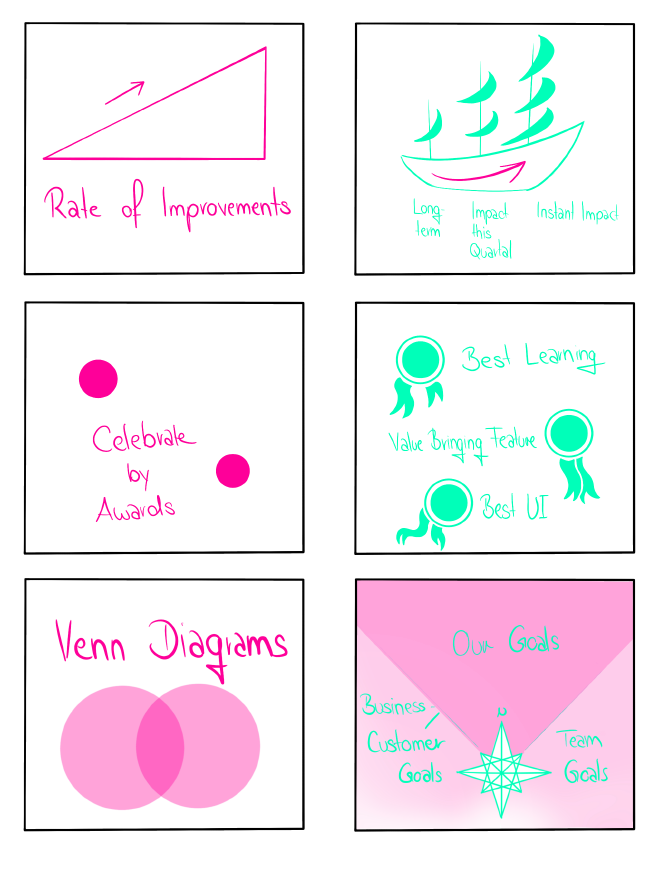 Rate of Improvements
Long-
term
Impact
this
Quartal
Instant Impact
Celebrate
by
Awards
Best Learning
Value Bringing Feature
Best UI
Venn Diagrams
Our Goals
Business-
/
Customer
Goals
N
Team
Goals